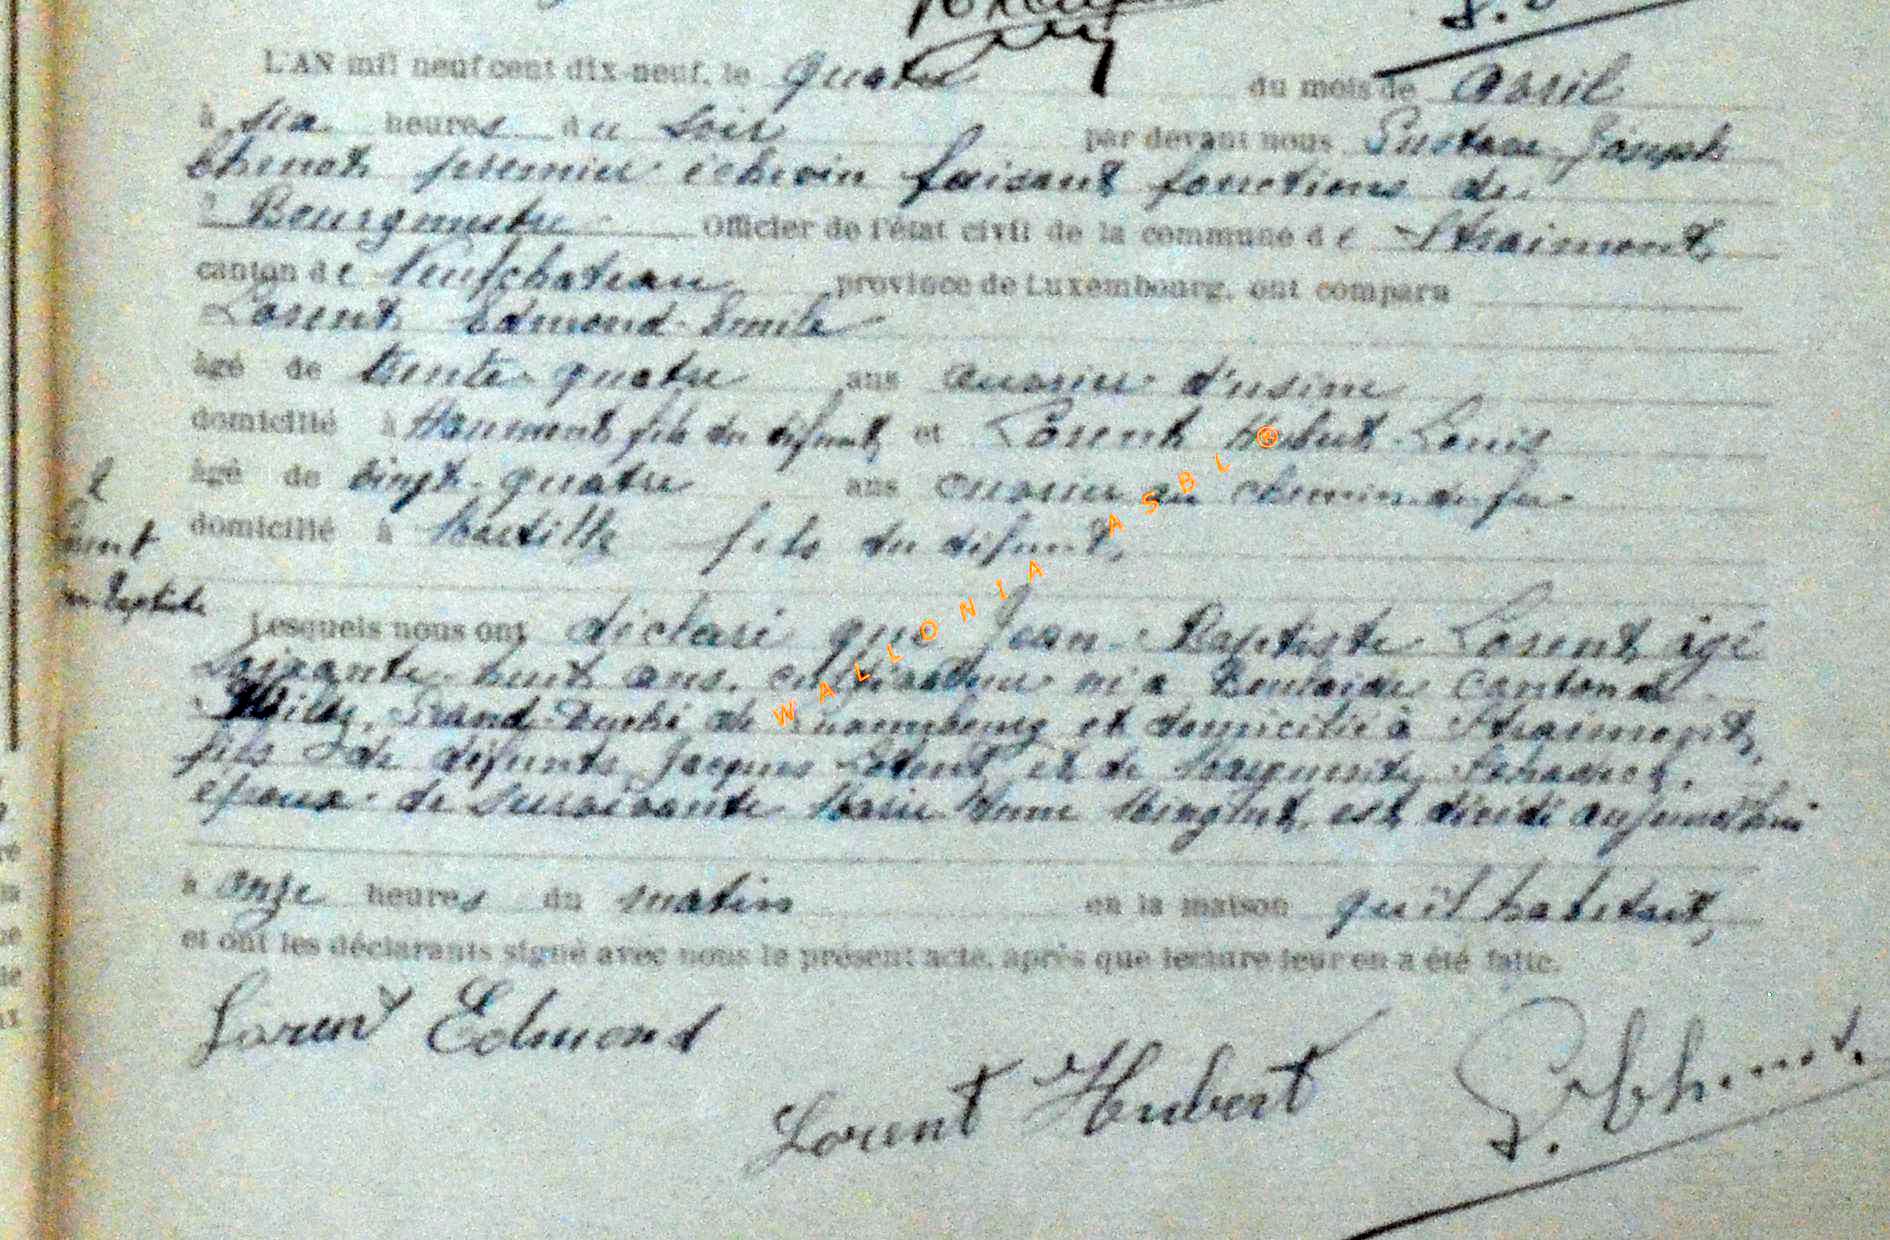 L'AN mil neuf cent dix-neuf, le quatre du mois de avril
à six heures du soir par devant nous Gustave Joseph
Chenot premier échevin faisant fonctions de
Bourgmestre Officier de l'état civil de la commune de Straimont,
canton de Neufchateau province de Luxembourg, ont comparu
Lorent Edmond Emile
âgé de trente quatre ans ouvrier d'usine
domicilié à fils du défunt, et Lorent Hubert Louis
âgé de vingt-quatre ans ouvrier au chemin de fer
domicilié à fils du défunt,
Lesquels nous ont déclaré que Jean-Baptiste Lorent, âgé
soixante huit ans, cultivateur né à canton de
Wiltz, Grand-Duché de Luxembourg et domicilié à Straimont,
fils de défunts Jacques Lorent et de Marguerite
époux de survivante Marie Anne est décédé aujourd'hui
à onze heures du matin en la maison qu'il habitait,
et ont les déclarants signé avec nous le présent acte, après que lecture leur en a été faite.
Lorent Edmond
Lorent Hubert
G. Chenot.
WALLONIA ASBL ®